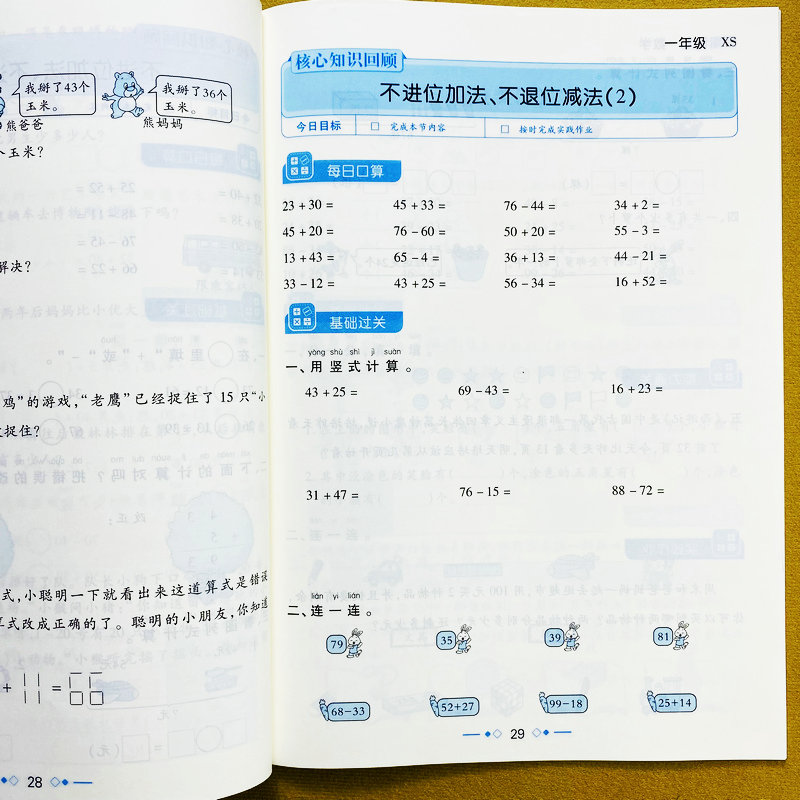 我掰了43个
玉米。
我掰了36个
玉米。
熊爸爸
熊妈妈
个玉米？
解决？
鸡”的游戏，“老鹰”已经捉住了 15 只“小
捉住？
式，小聪明一下就看出来这道算式是错误
算式改成正确的了。聪明的小朋友，你知道
+11=66
28
一年级 XS
核心知识回顾
不进位加法、不退位减法(2)
今日目标 □ 完成本节内容 □ 按时完成实践作业
每日口算
23+30= 45+33= 76-44= 34+2=
45+20= 76-60= 50+20= 55-3=
13+43= 65-4= 36+13= 44-21=
33-12= 43+25= 56-34= 16+52=
基础过关
yòng shù shì jì suàn
一、用竖式计算。
43+25= 69-43= 16+23=
31+47= 76-15= 88-72=
lián yi lián
二、连一连。
79 35 39 81
68-33 52+27 99-18 25+14
29